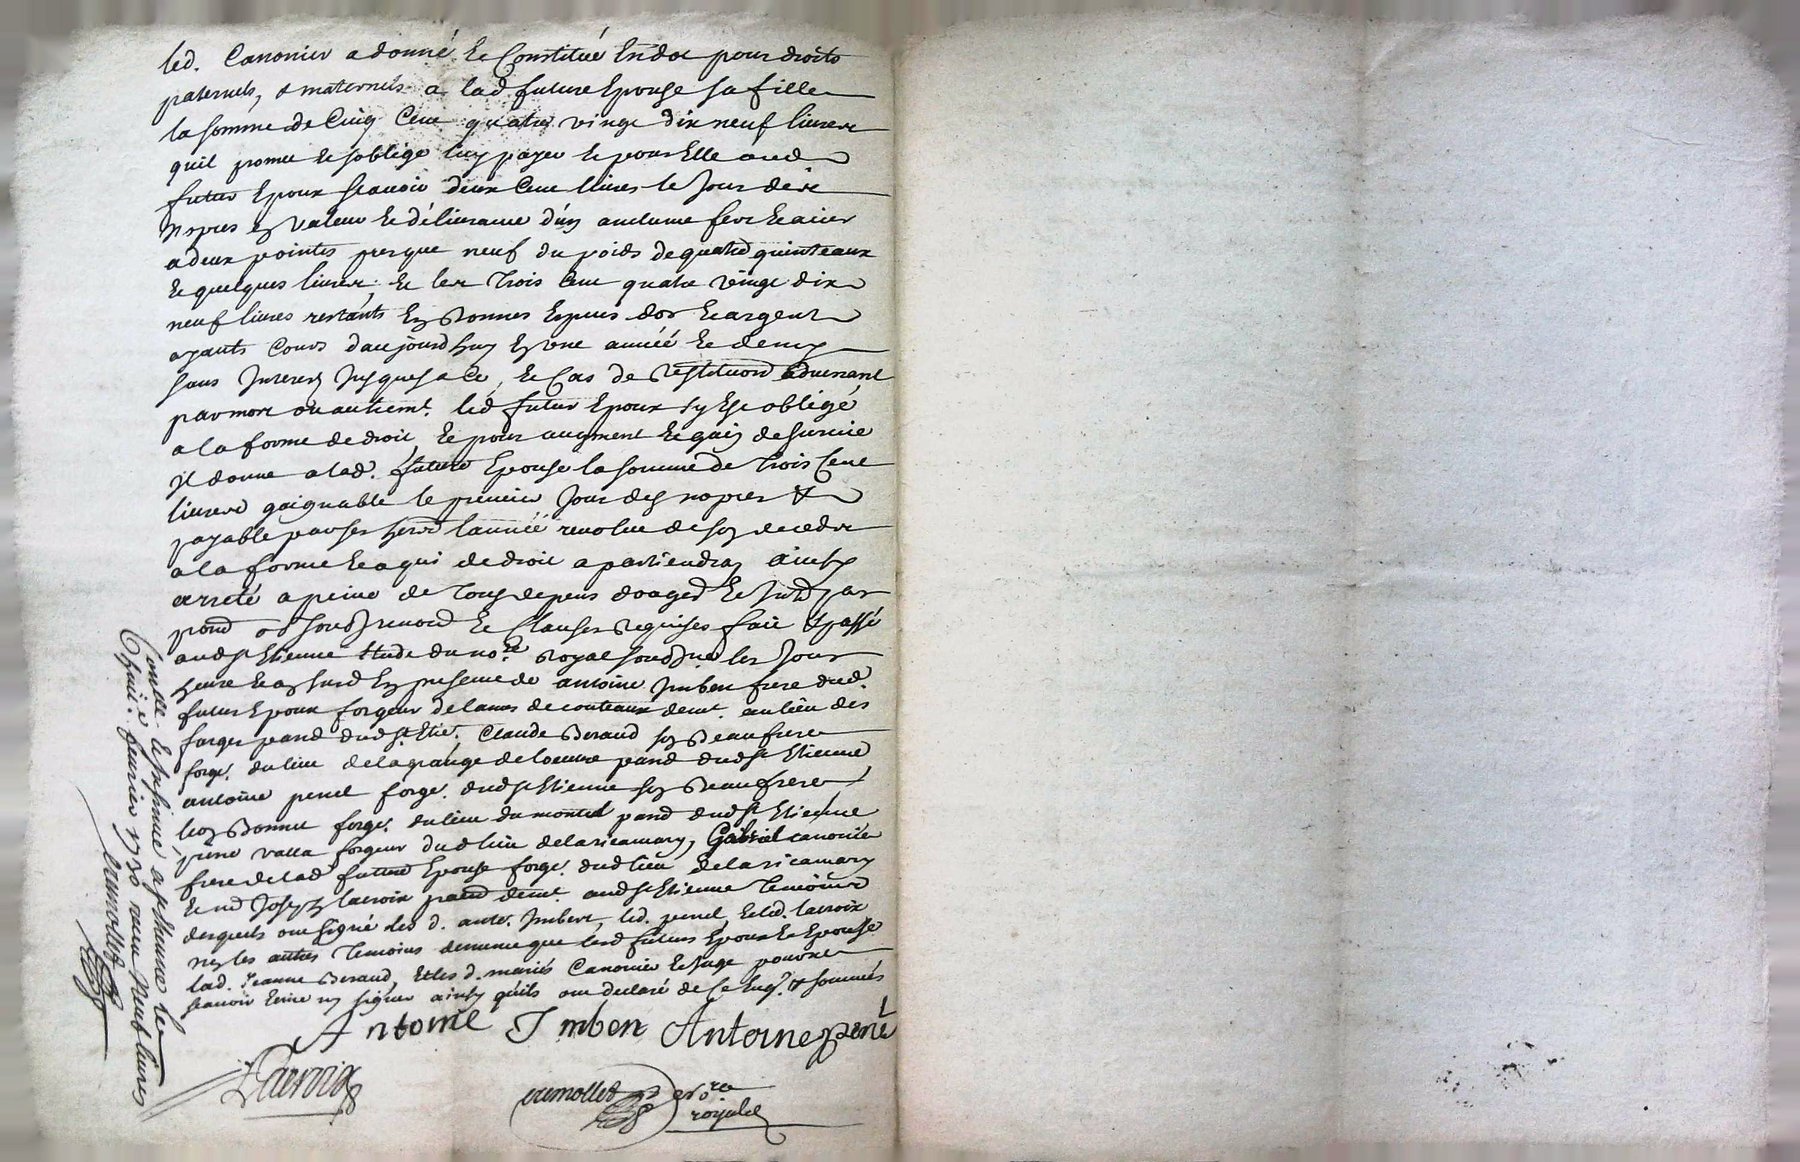 led. Canonier a donné et Constitué En dot pour droits
paternels, & maternels a lad. future Epouse sa fille
la somme de Cinq Cent quatre vingt dix neuf livres
quil promet et soblige luy payer et pour Elle aud.
futur Epoux scavoir deux Cent livres le Jour de
Nopces En valeur et délivrance d'un anclume fer et acier
a deux pointes presque neuf du poids de quatre quinteaux
et quelques livres, et les trois Cent quatre vingt dix
neuf livres restants En Bonnes Especes dor et argent
ayants Cours daujourdhuy En une année et demy
sans Interest Jusques a Ce, et Cas de Restitution advenant
par mort ou autremt. led futur Epoux sy Est obligé
a la forme de droit, et pour augment et gain de survie
Il donne a lad. future Epouse la somme de trois Cent
livres gaignable le premier Jour des nopces &
payable par ses hers l'année revolue de son deceds
a la forme et a qui de droit apartiendra, ainsy
arreté a peine de tous depens
et Clauses Requises fait & passé
aud St Etienne Etude du nore Royal les Jour
heure et an En presence de antoine Imbert frere dud.
futur Epoux forgeur de lames de couteaux demt. au lieu des
forges dud St Etie. Claude Beraud son Beaufrere
forge. du lieu de la grange de loeuvre dud St Etienne
antoine penel forge. dud St Etienne son Beaufrere
leon Bonnet forge. du lieu du montel dud St Etienne
valla forgeur dud lieu de la ricamary, Gabriel canonier
frere de lad future Epouse forge. dud lieu de la ricamary
et Joseph lacroix demt. aud St Etienne temoins
desquels ont signé les d. ante. Imbert, led. penel, et led. lacroix
les autres temoins de mme que lesd futurs Epoux et Epouse
lad. Jeanne Beraud, et les d. mariés Canonier et pour ne
scavoir Ecrire ny signer ainsy quils ont declaré de Ce Enq. & sommés
Antoine Imbert Antoine penel
Lacroix
cremollet nore
royal
Conlle. et Insinué a st Etienne le
fevrier 1730 receu neuf livres
cremollet